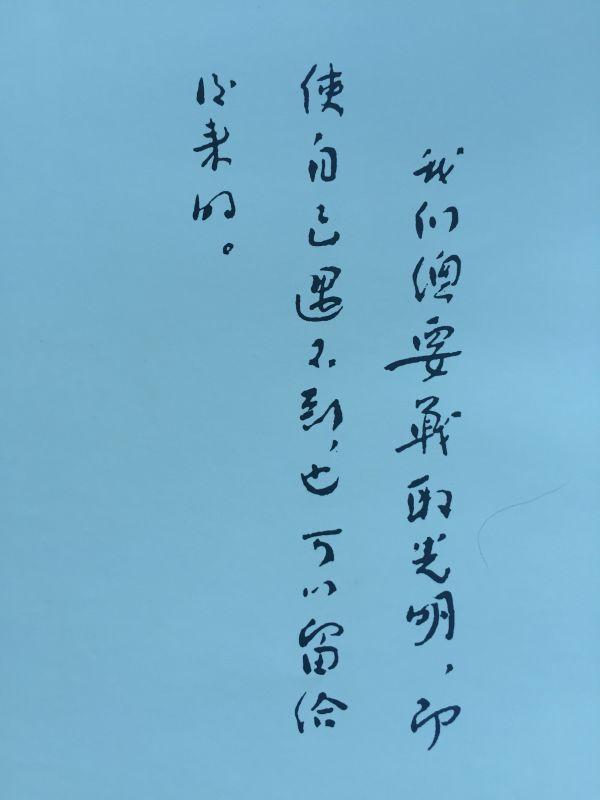 我们總要戰取光明，即
使自己遇不到，也可以留给
後来的。